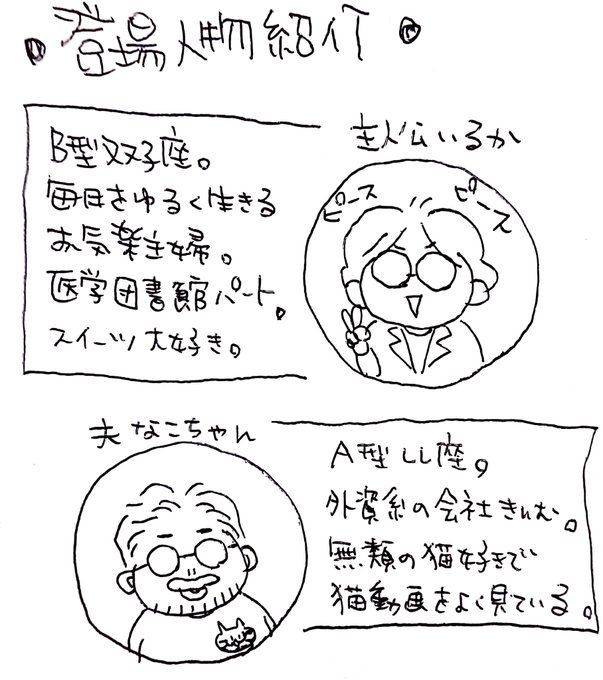 登場人物紹介
主人公いるか
B型双子座。
毎日をゆるく生きる
お気楽主婦。
医学図書館パート。
スイーツ大好き。
ピース
ピース
夫なこちゃん
A型しし座。
外資系の会社きんむ。
無類の猫好きで
猫動画をよく見ている。